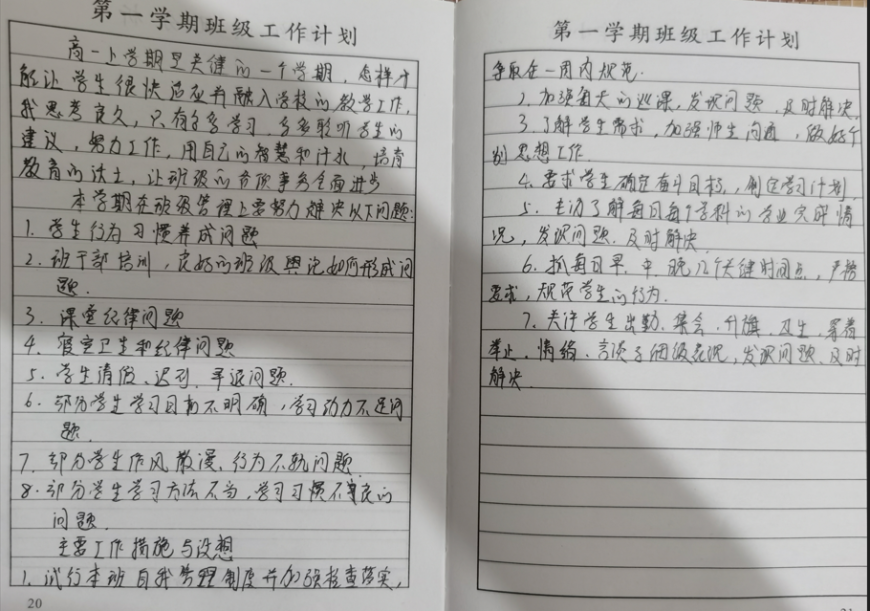 第一学期班级工作计划
高一上学期是关健的一个学期，怎样才
能让学生很快适应并融入学校的教学工作，
我思考良久，只有多多学习，多多聆听学生的
建议，努力工作，用自己的智慧和汁水，培育
教育的沃土，让班级的各项事务全面进步
本学期在班级管理上要努力解决以下问题：
1. 学生行为习惯养成问题
2. 班干部培训，良好的班级舆论如何形成问
题.
3. 课堂纪律问题
4. 寝室卫生和纪律问题
5. 学生请假、迟到、早退问题.
6. 部分学生学习目标不明确，学习动力不足问
题.
7. 部分学生作风散漫、行为不轨问题
8. 部分学生学习方法不当，学习习惯不良的
问题.
主要工作措施与设想
1. 试行本班自我管理制度并加强检查落实，
20
第一学期班级工作计划
争取在一周内规范.
2. 加强每天的巡课，发现问题，及时解决.
3. 了解学生需求，加强师生沟通，做好个
别思想工作.
4. 要求学生确定奋斗目标，制定学习计划.
5. 主动了解每日每个学科的作业完成情
况，发现问题.及时解决.
6. 抓每日早、中、晚几个关健时间点，严格
要求，规范学生的行为.
7. 关注学生出勤、集会、升旗、卫生、穿着
举止、情绪、言谈等细级表现，发现问题.及时
解决.